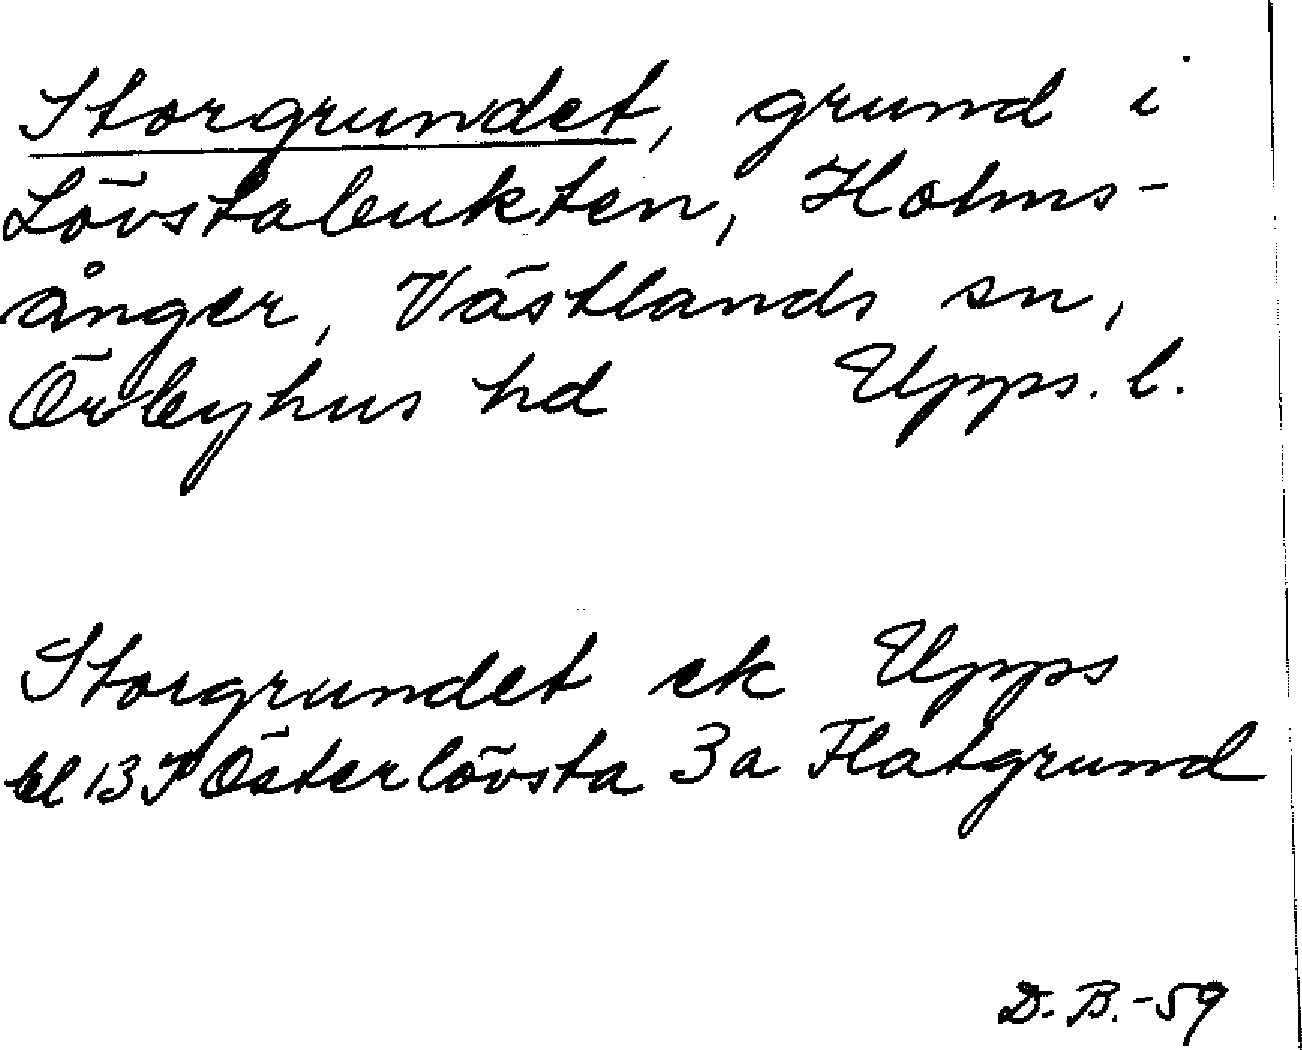 Storgrundet, grund i
Lövstabukten, Holms-
ånger, Västlands sn,
Örbyhus hd Upps. l.
Storgrundet ek Upps
bl 13 I Österlövsta 3a Flatgrund
D.B.-59